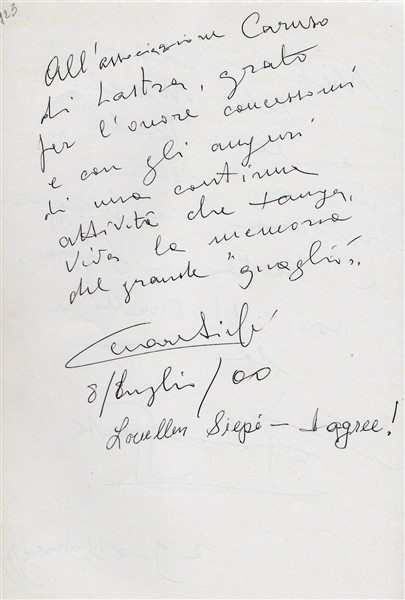 123
All'associazione Caruso
di Lastra, grato
per l'onore concessomi
e con gli auguri
di una continua
attività che tenga
viva la memoria
del grande "guaglió".
Cesare Siepi
8/luglio/00
Louellen Siepi — I agree!